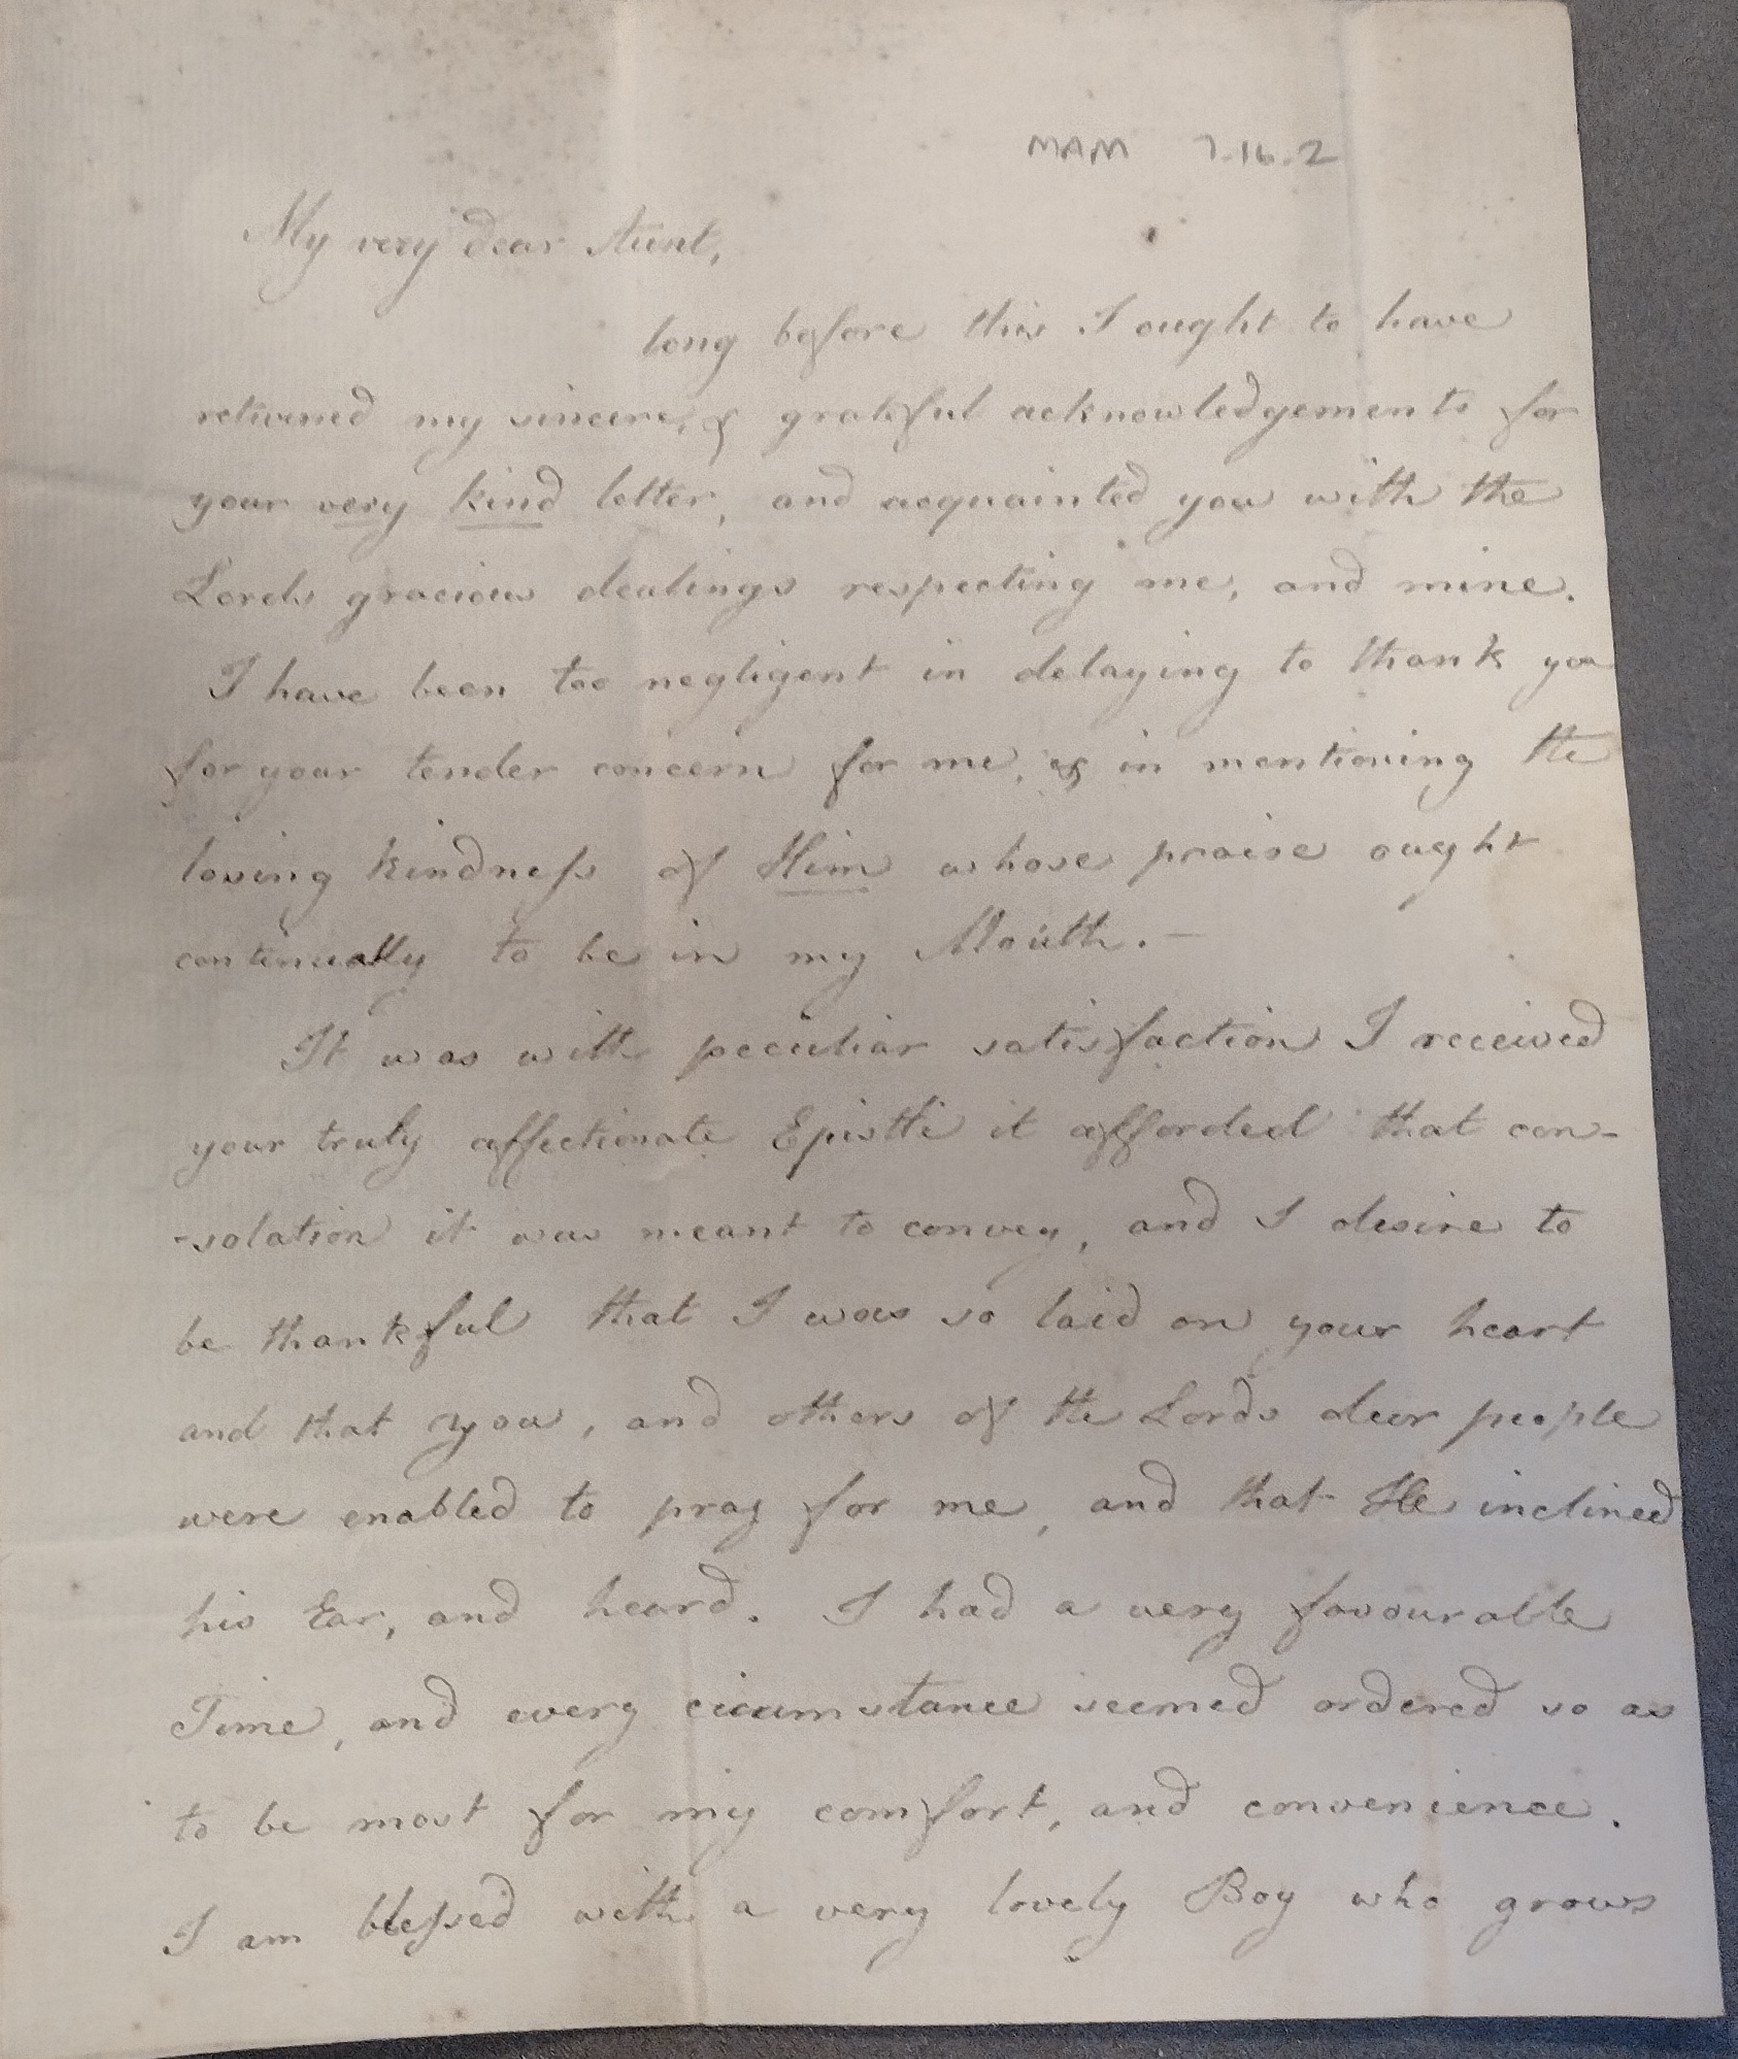 MAM 7.16.2
My very dear Aunt,
long before this I ought to have
returned my sincere, & grateful acknowledgements for
your very kind letter, and acquainted you with the
Lords gracious dealings respecting me, and mine.
I have been too negligent in delaying to thank you
for your tender concern for me, & in mentioning the
loving kindness of Him whose praise ought
continually to be in my Mouth. —
It was with peculiar satisfaction I received
your truly affectionate Epistle it afforded that con-
-solation it was meant to convey, and I desire to
be thankful that I was so laid on your heart
and that you, and others of the Lords dear people
were enabled to pray for me, and that He inclined
his Ear, and heard. I had a very favourable
Time, and every cicumstance seemed ordered so as
to be most for my comfort, and convenience.
I am blessed with a very lovely Boy who grows